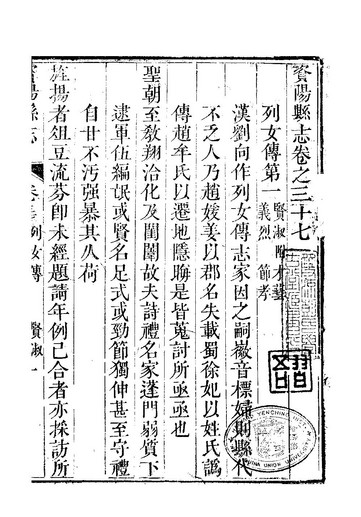 資陽縣志卷之三十七
列女傳第一 賢淑 附才藝 義烈 節孝
漢劉向作列女傳志家因之嗣徽音標婦則縣代
不乏人乃趙媛姜以郡名失載蜀徐妃以姓氏譌
傳趙牟氏以遷地隱晦是皆蒐討所亟亟也
聖朝至敎翔洽化及閨闈故夫詩禮名家蓬門弱質下
逮軍伍編氓或賢名足式或勁節獨伸甚至守禮
自甘不汚强暴其久荷
旌揚者俎豆流芬卽未經題請年例已合者亦採訪所
資陽縣志 列女傳 賢淑 一